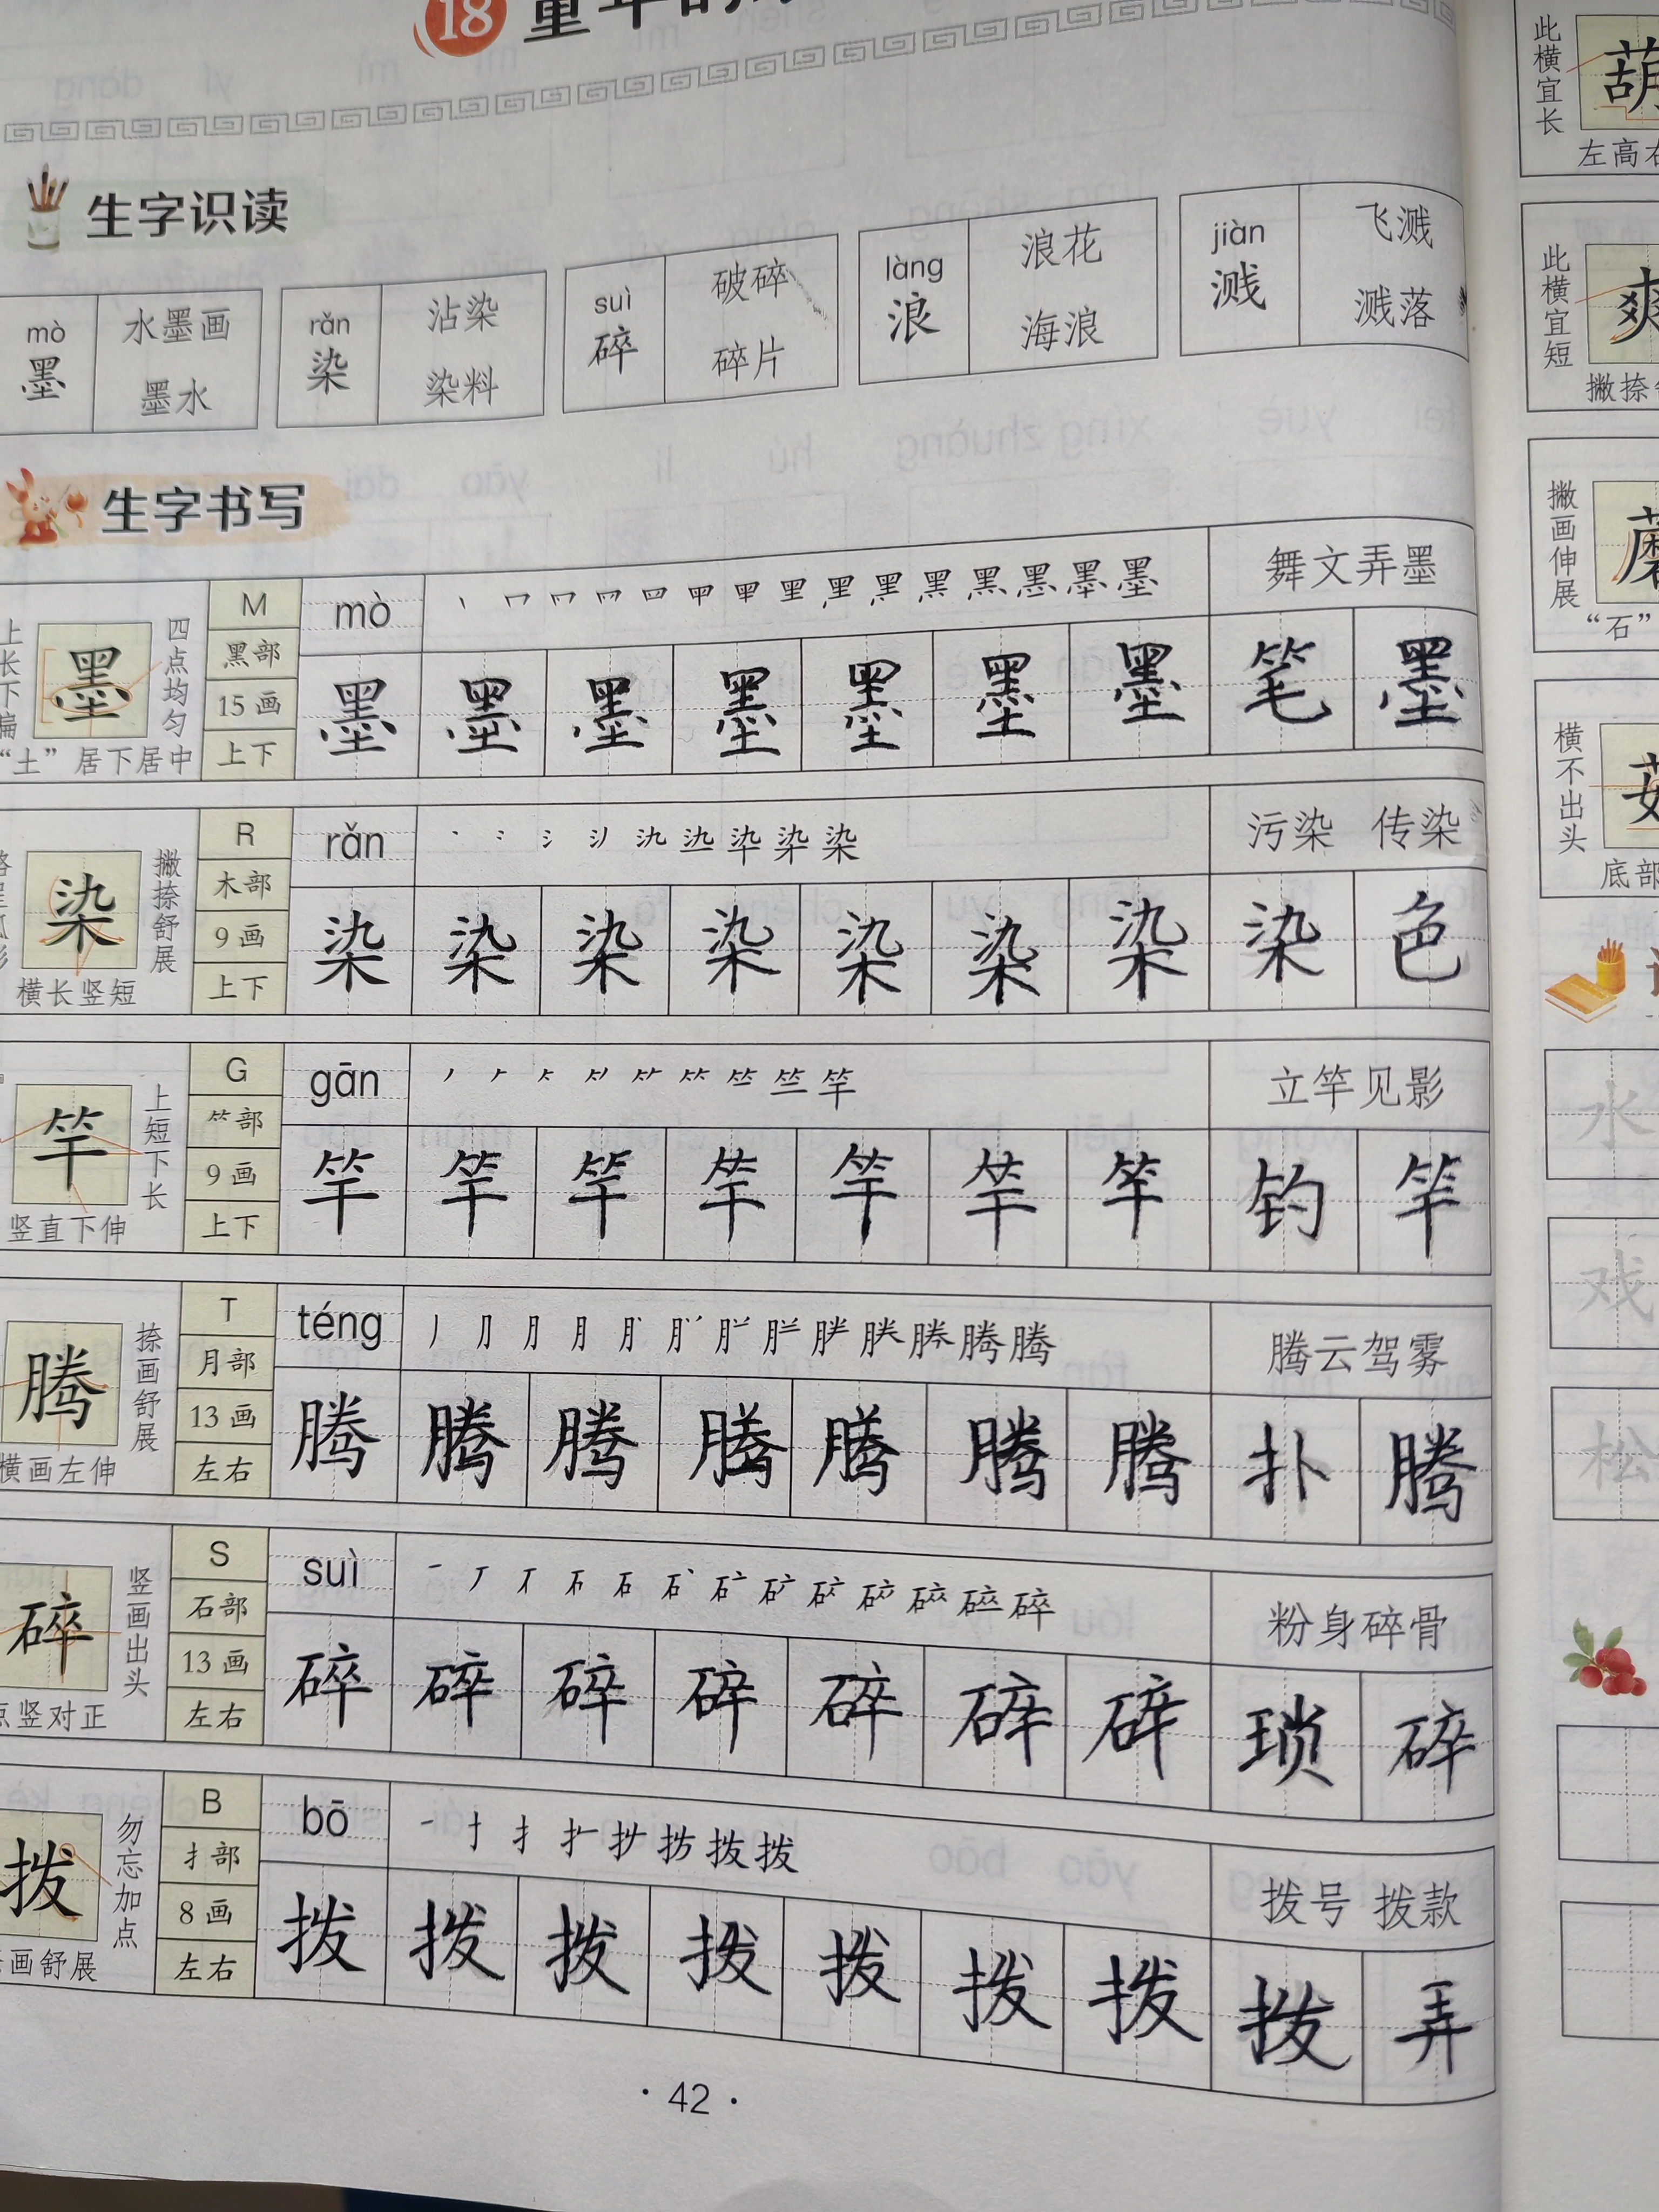 18 童年的
生字识读
mò 墨 水墨画 墨水
rǎn 染 沾染 染料
suì 碎 破碎 碎片
làng 浪 浪花 海浪
jiàn 溅 飞溅 溅落
生字书写
上长下扁 墨 四点均匀
“土”居下居中
M 黑部 15画 上下
mò 舞文弄墨
墨 墨 墨 墨 墨 墨 墨 笔 墨
染 撇捺舒展
横长竖短
R 木部 9画 上下
rǎn 污染 传染
染 染 染 染 染 染 染 染 色
竿 上短下长
竖直下伸
G ⺮部 9画 上下
gān 立竿见影
竿 竿 竿 竿 竿 竿 竿 钓 竿
腾 捺画舒展
横画左伸
T 月部 13画 左右
téng 腾云驾雾
腾 腾 腾 腾 腾 腾 腾 扑 腾
碎 竖画出头
点竖对正
S 石部 13画 左右
suì 粉身碎骨
碎 碎 碎 碎 碎 碎 碎 琐 碎
拨 勿忘加点
画舒展
B 扌部 8画 左右
bō 拨号 拨款
拨 拨 拨 拨 拨 拨 拨 拨 弄
·42·
此横宜长 葫
左高右
此横宜短 爽
撇捺
撇画伸展 蘑
“石”
横不出头 菇
底部
水
戏
松